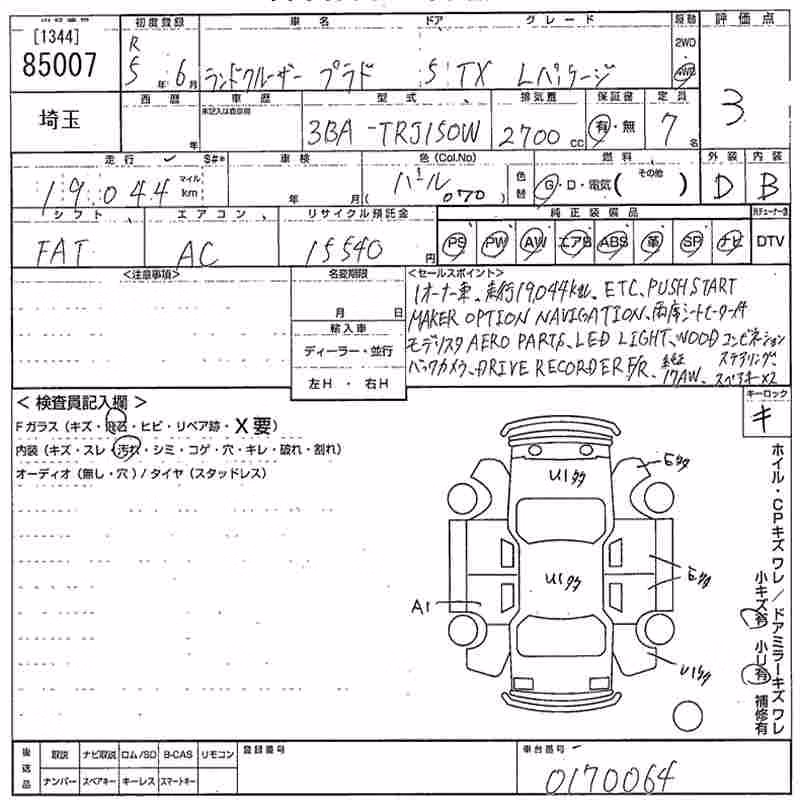 [1344]
85007
初度登録 車名 ドア グレード 駆動 評価点
R 5年 6月 ランドクルーザー プラド 5 TX Lパッケージ 2WD 4WD
3
埼玉
西暦 車歴 型式 排気量 保証書 定員
年 未記入は自家用 3BA-TRJ150W 2700cc 有・無 7名
走行 S#* 車検 色(Col.No) 燃料 外装 内装
19044 マイル km 年 月 パール (070) 色替 G・D・電気( その他 ) D B
シフト エアコン リサイクル預託金 純正装備品
FAT AC 15540円 PS PW AW エアB ABS 革 SP ナビ DTV
<注意事項> 名変期限 <セールスポイント>
月 日
輸入車
ディーラー・並行
左H・右H
1オーナー車、走行19,044km、ETC、PUSH START
MAKER OPTION NAVIGATION、両席シートヒーター付
モデリスタ AERO PARTS、LED LIGHT、WOOD コンビネーション
ステアリング、
バックカメラ、DRIVE RECORDER F/R、純正
17AW、スペアキー×2
<検査員記入欄> キーロック
キ
Fガラス(キズ・飛石・ヒビ・リペア跡・X要)
内装(キズ・スレ・汚れ・シミ・コゲ・穴・キレ・破れ・割れ)
オーディオ(無し・穴)/タイヤ(スタッドレス)
U1タタ
Eタタ
U1タタ
Eタタ
A1
U1タタ
ホイル・CPキズ ワレ/ドアミラーキズ ワレ
小キズ有 小U有 補修有
後送品 取説 ナビ取説 ロム/SD B-CAS リモコン 登録番号 車台番号
ナンバー スペアキー キーレス スマートキー 0170064